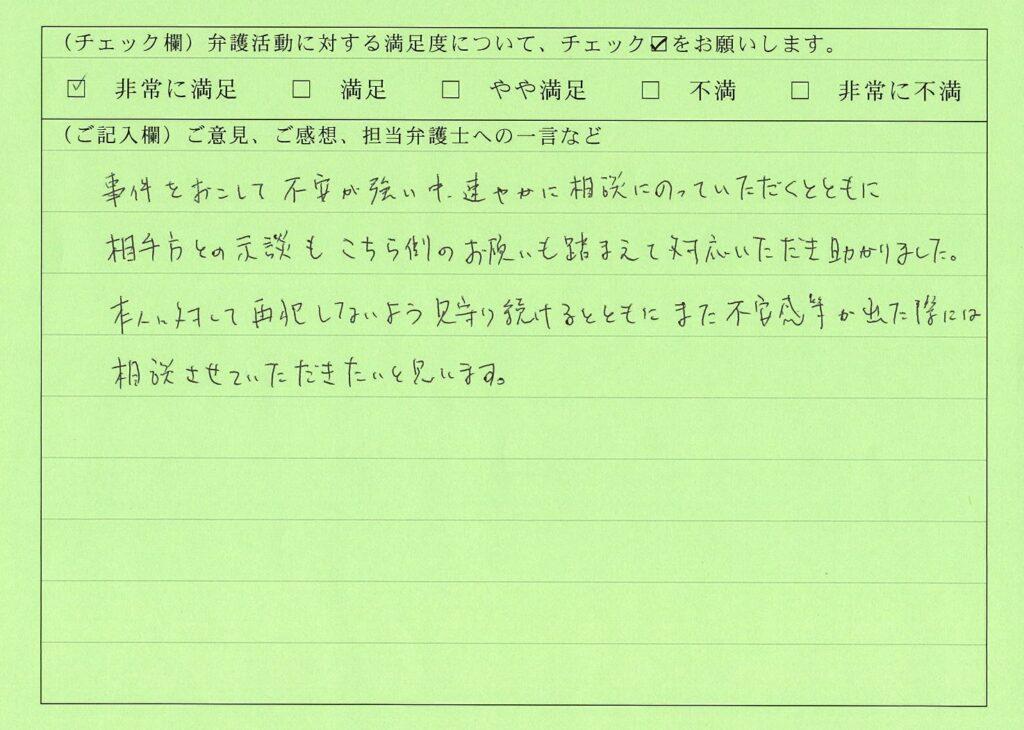 （チェック欄）弁護活動に対する満足度について、チェック☑をお願いします。
☑ 非常に満足 □ 満足 □ やや満足 □ 不満 □ 非常に不満
（ご記入欄）ご意見、ご感想、担当弁護士への一言など
事件をおこして不安が強い中、速やかに相談にのっていただくとともに
相手方との示談もこちら側のお願いも踏まえて対応いただき助かりました。
本人に対して再犯しないよう見守り続けるとともにまた不安感等が出た際には
相談させていただきたいと思います。